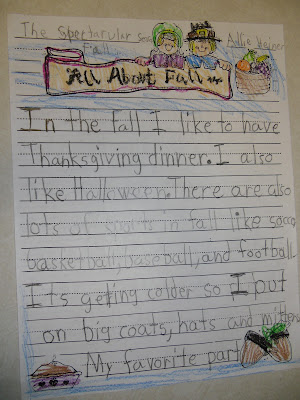 The spectarular sea
Fall
Allie
All About Fall
In the fall I like to have
Thanksgiving dinner. I also
like Halloween. There are also
lots of sports in fall like socc
basketball, baseball, and football
It's getting colder so I put
on big coats, hats and mitten
My favorite part